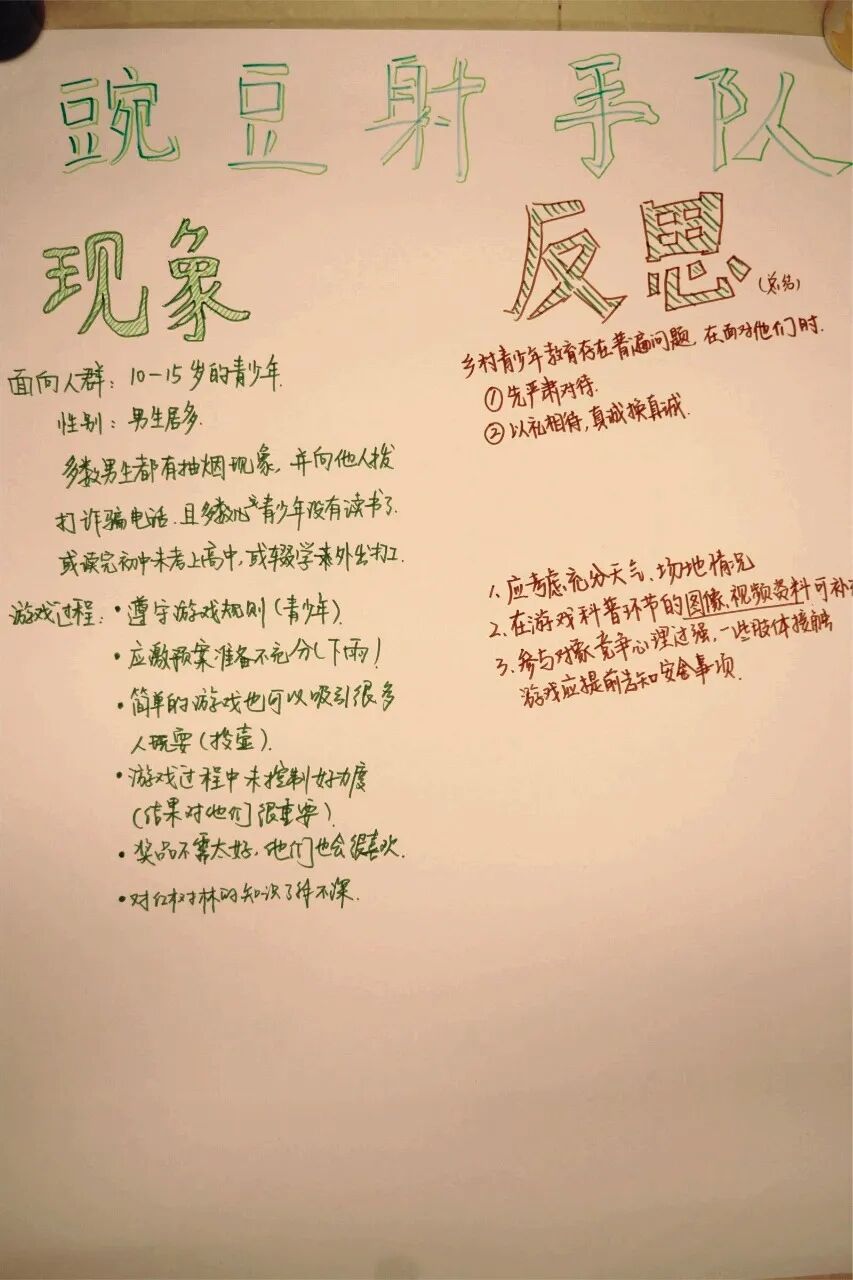 豌豆射手队
现象
面向人群：10－15岁的青少年.
性别：男生居多.
多数男生都有抽烟现象，并向他人拨
打诈骗电话.且多数青少年没有读书了.
或读完初中未考上高中，或辍学外出打工.
游戏过程：•遵守游戏规则（青少年）.
•应激预案准备不充分（下雨）
•简单的游戏也可以吸引很多
人玩耍（投壶）.
•游戏过程中未控制好力度
（结果对他们很重要）.
•奖品不需太好，他们也会很喜欢.
•对红树林的知识了解不深.
反思（总结）
乡村青少年教育存在普遍问题，在面对他们时.
①先严肃对待.
②以礼相待，真诚换真诚.
1.应考虑充分天气、场地情况
2.在游戏科普环节的图像、视频资料可补
3.参与对象竞争心理过强，一些肢体接触
游戏应提前告知安全事项.